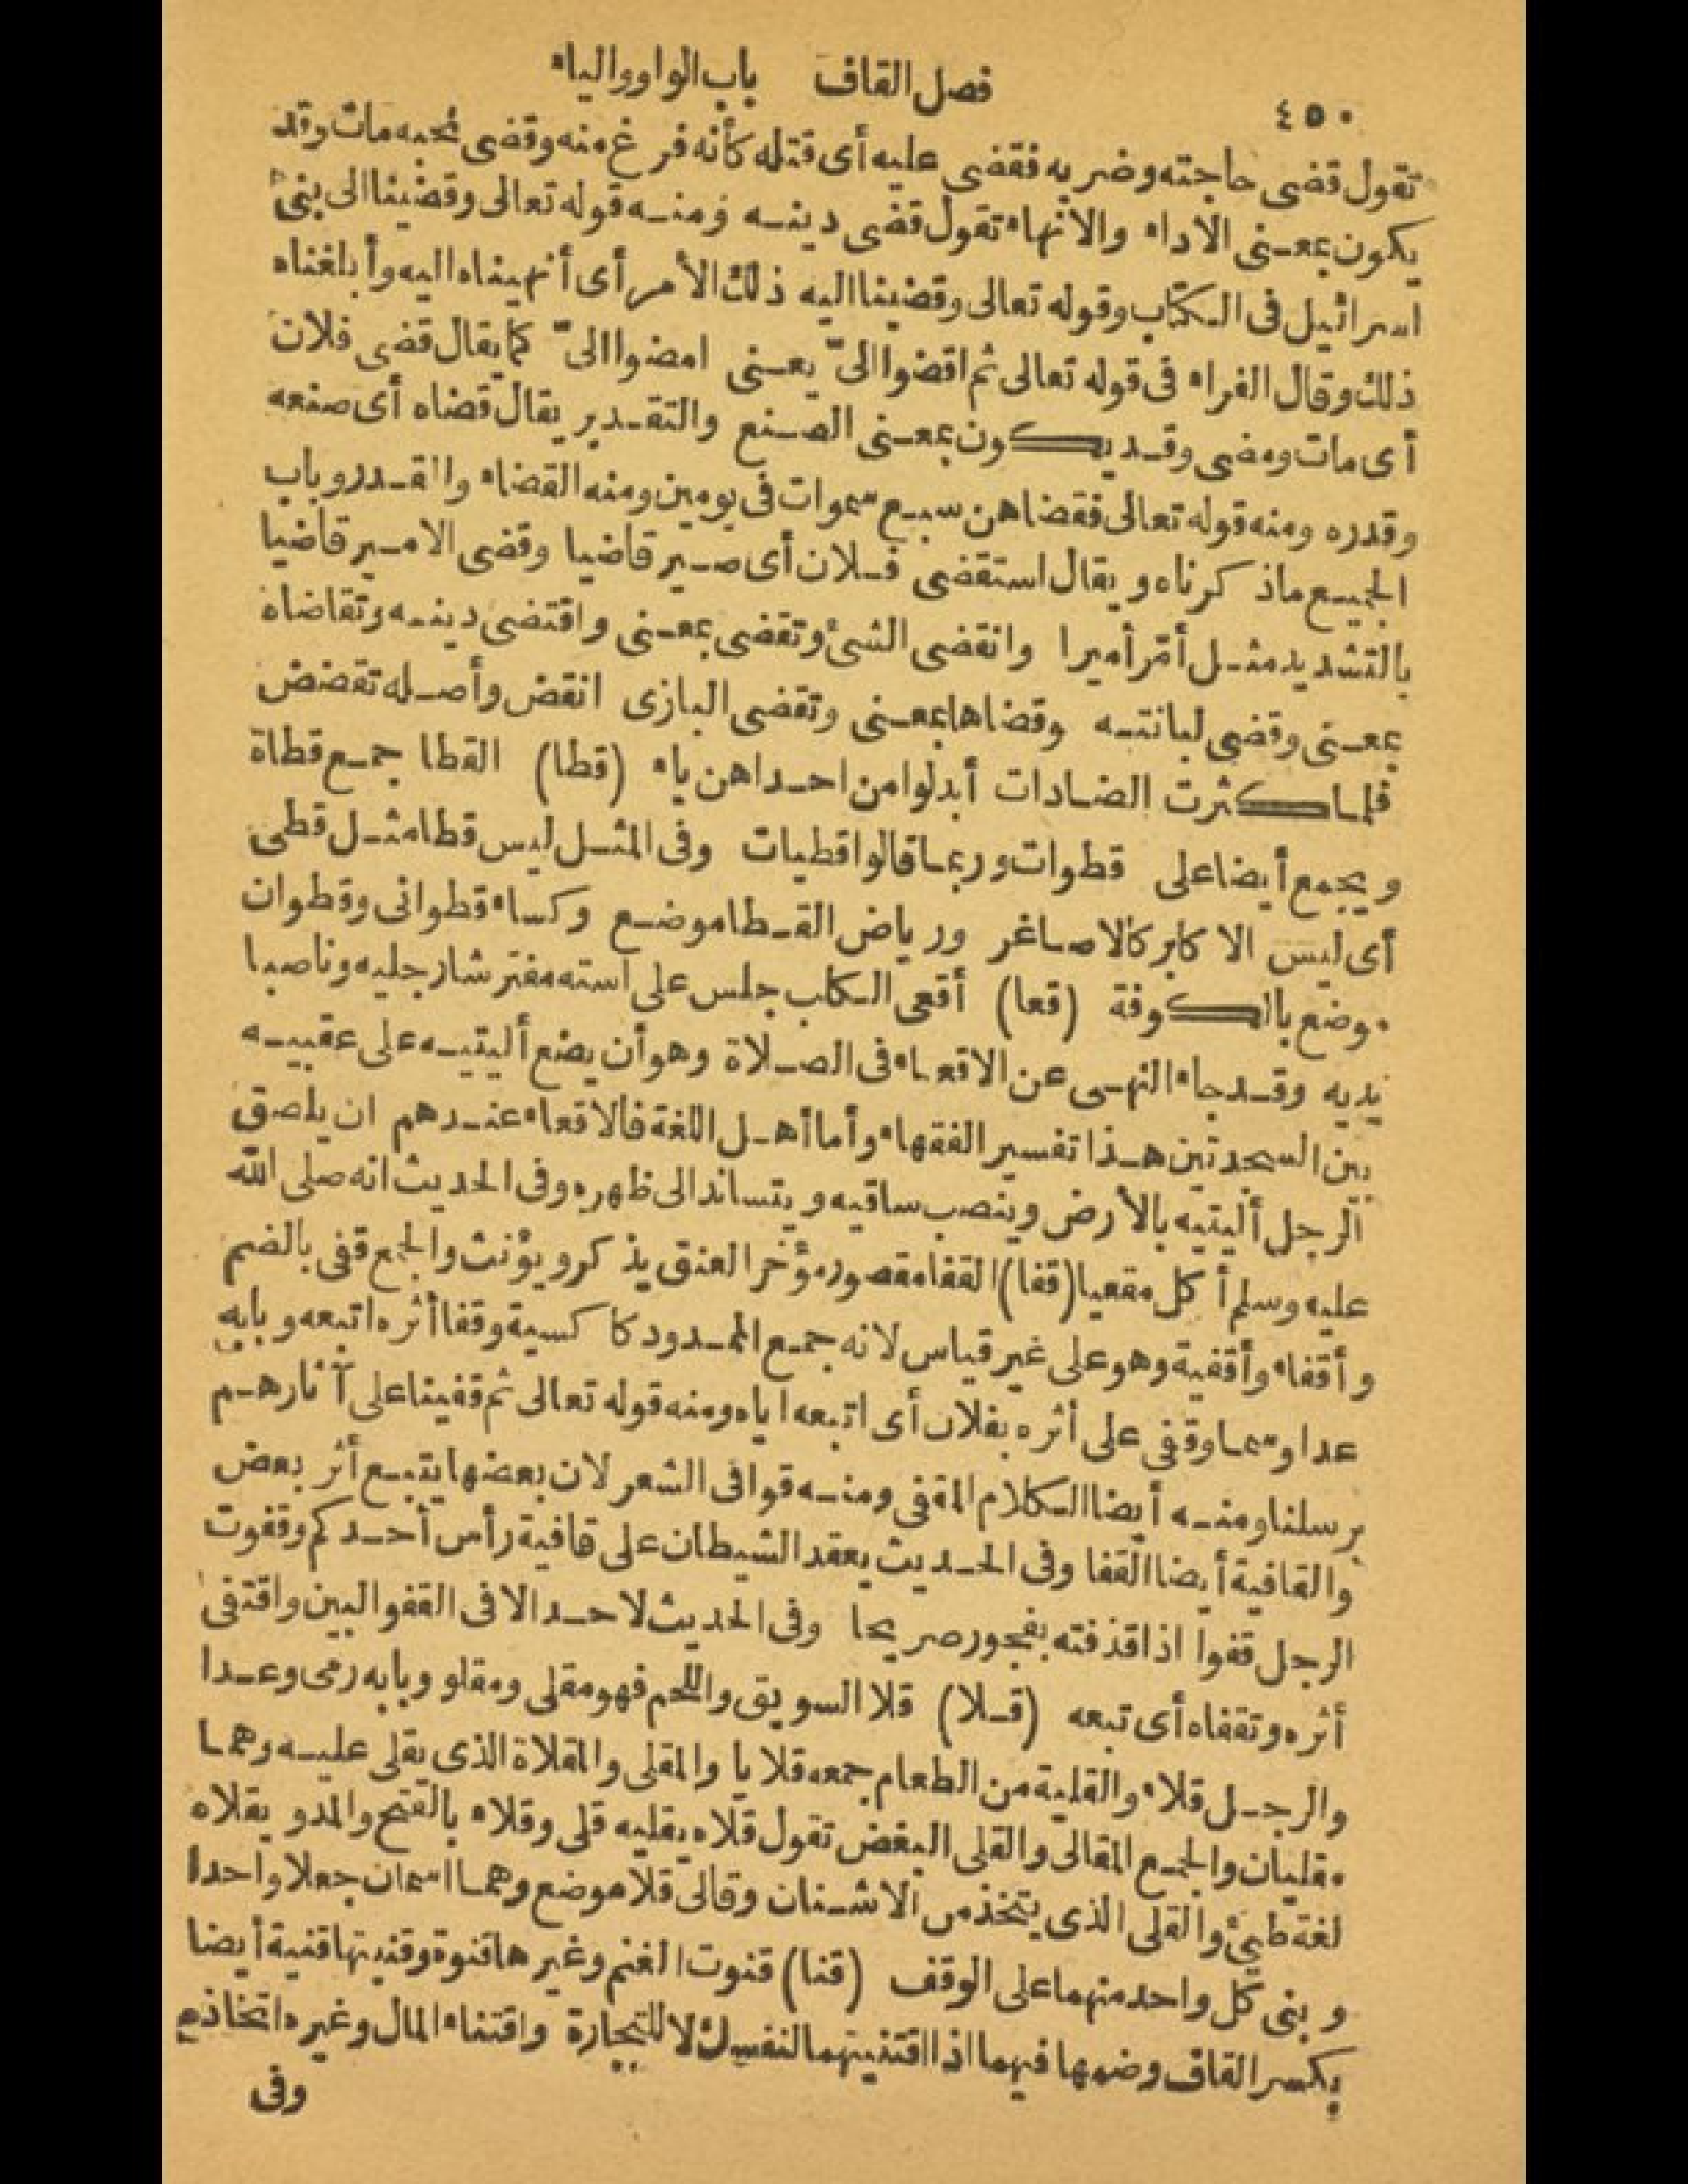 ٤٥٠
فصل القاف باب الواو والياء
تقول قضى حاجته وضربه فقضى عليه أى قتله كأنه فرغ منه وقضى نحبه مات وقد
يكون بمعنى الاداء والانهاء تقول قضى دينه ومنه قوله تعالى وقضينا الى بنى
اسرائيل فى الكتاب وقوله تعالى وقضينا اليه ذلك الأمر أى أنهيناه اليه وأبلغناه
ذلك وقال الفراء فى قوله تعالى ثم اقضوا الىّ يعنى امضوا الىّ كما يقال قضى فلان
أى مات ومضى وقد يكون بمعنى الصنع والتقدير يقال قضاه أى صنعه
وقدره ومنه قوله تعالى فقضاهن سبع سموات فى يومين ومنه القضاء والقدر وباب
الجميع ماذكرناه ويقال استقضى فلان أى صير قاضيا وقضى الامير قاضيا
بالتشديد مثل أمّر أميرا وانقضى الشئ وتقضى بمعنى واقتضى دينه وتقاضاه
بمعنى وقضى لبانته وقضاها بمعنى وتقضى البازى انقض وأصله تقضض
فلما كثرت الضادات أبدلوا من احداهن ياء (قطا) القطا جمع قطاة
ويجمع أيضا على قطوات وربما قالوا قطيات وفى المثل ليس قطا مثل قطى
أى ليس الا كابر كالاصاغر ورياض القطا موضع وكساء قطوانى وقطوان
موضع بالكوفة (قعا) أقعى الكلب جلس على استه مفترشا رجليه وناصبا
يديه وقد جاء النهى عن الاقعاء فى الصلاة وهو أن يضع أليتيه على عقبيه
بين السجدتين هذا تفسير الفقهاء وأما أهل اللغة فالاقعاء عندهم ان يلصق
الرجل أليتيه بالأرض وينصب ساقيه ويتساند الى ظهره وفى الحديث انه صلى الله
عليه وسلم أكل مقعيا (قفا) القفا مقصور مؤخر العنق يذكر ويؤنث والجمع قفى بالضم
وأقفاء وأقفية وهو على غير قياس لانه جمع الممدود كاكسية وقفا أثره اتبعه وبابه
عدا وسما وقفى على أثره بفلان أى اتبعه اياه ومنه قوله تعالى ثم قفينا على آثارهم
برسلنا ومنه أيضا الكلام المقفى ومنه قوافى الشعر لان بعضها يتبع أثر بعض
والقافية أيضا القفا وفى الحديث يعقد الشيطان على قافية رأس أحدكم وقفوت
الرجل قفوا اذا قذفته بفجور صريحا وفى الحديث لا حد الا فى القفو البين واقتفى
أثره وتقفاه أى تبعه (قلا) قلا السويق واللحم فهو مقلى ومقلو وبابه رمى وعدا
والرجل قلاء والقلية من الطعام جمعه قلايا والمقلى والمقلاة الذى يقلى عليه وهما
مقليان والجمع المقالى والقلى البغض تقول قلاه يقليه قلى وقلاء بالفتح والمد ويقلاه
لغة طيئ والقلى الذى يتخذ من الاشنان وقالى قلا موضع وهما اسمان جعلا واحدا
وبنى كل واحد منهما على الوقف (قنا) قنوت الغنم وغيرها قنوة وقنيتها قنية أيضا
بكسر القاف وضمها فيهما اذا اقتنيتهما لنفسك لا للتجارة واقتناء المال وغيره اتخاذه
وفى